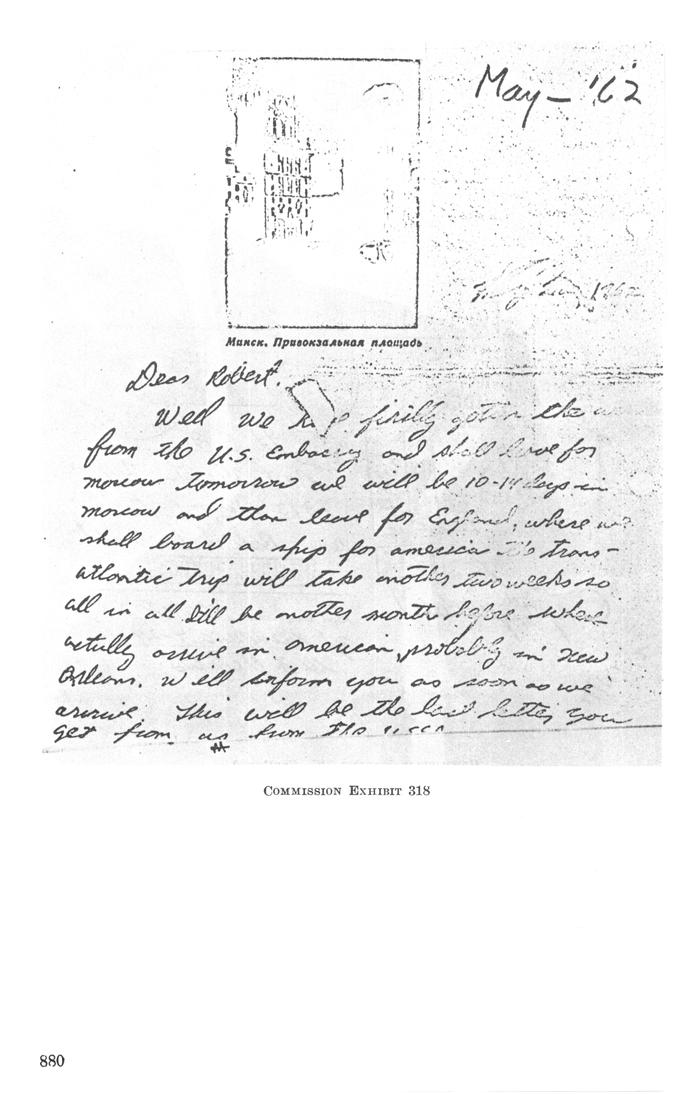 May - '62
1962
Минск. Привокзальная площадь
Dear Robert.
Well we have finlly gotin the
from the U.S. Embassy and shall leave for
moscow tomorrow we will be 10-14 days in
moscow and than leave for England, where we
shall board a ship for america the trans-
atlantic trip will take another two weeks so
all in all it'll be another month before
actully arrive in american, probobly in new
Orleans. will inform you as soon as we
arrive This will be the last letter you
get from us from the USSR
COMMISSION EXHIBIT 318
880